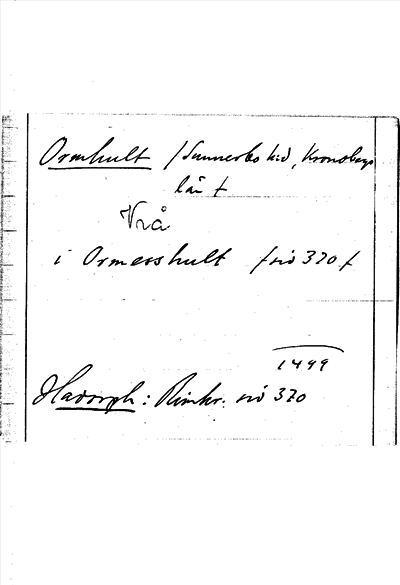 Ormhult /Sunnerbo hd, Kronobergs
län /
Vrå
i Ormesshult /sid 370/
1499
Hadorph: Rimkr. sid 370